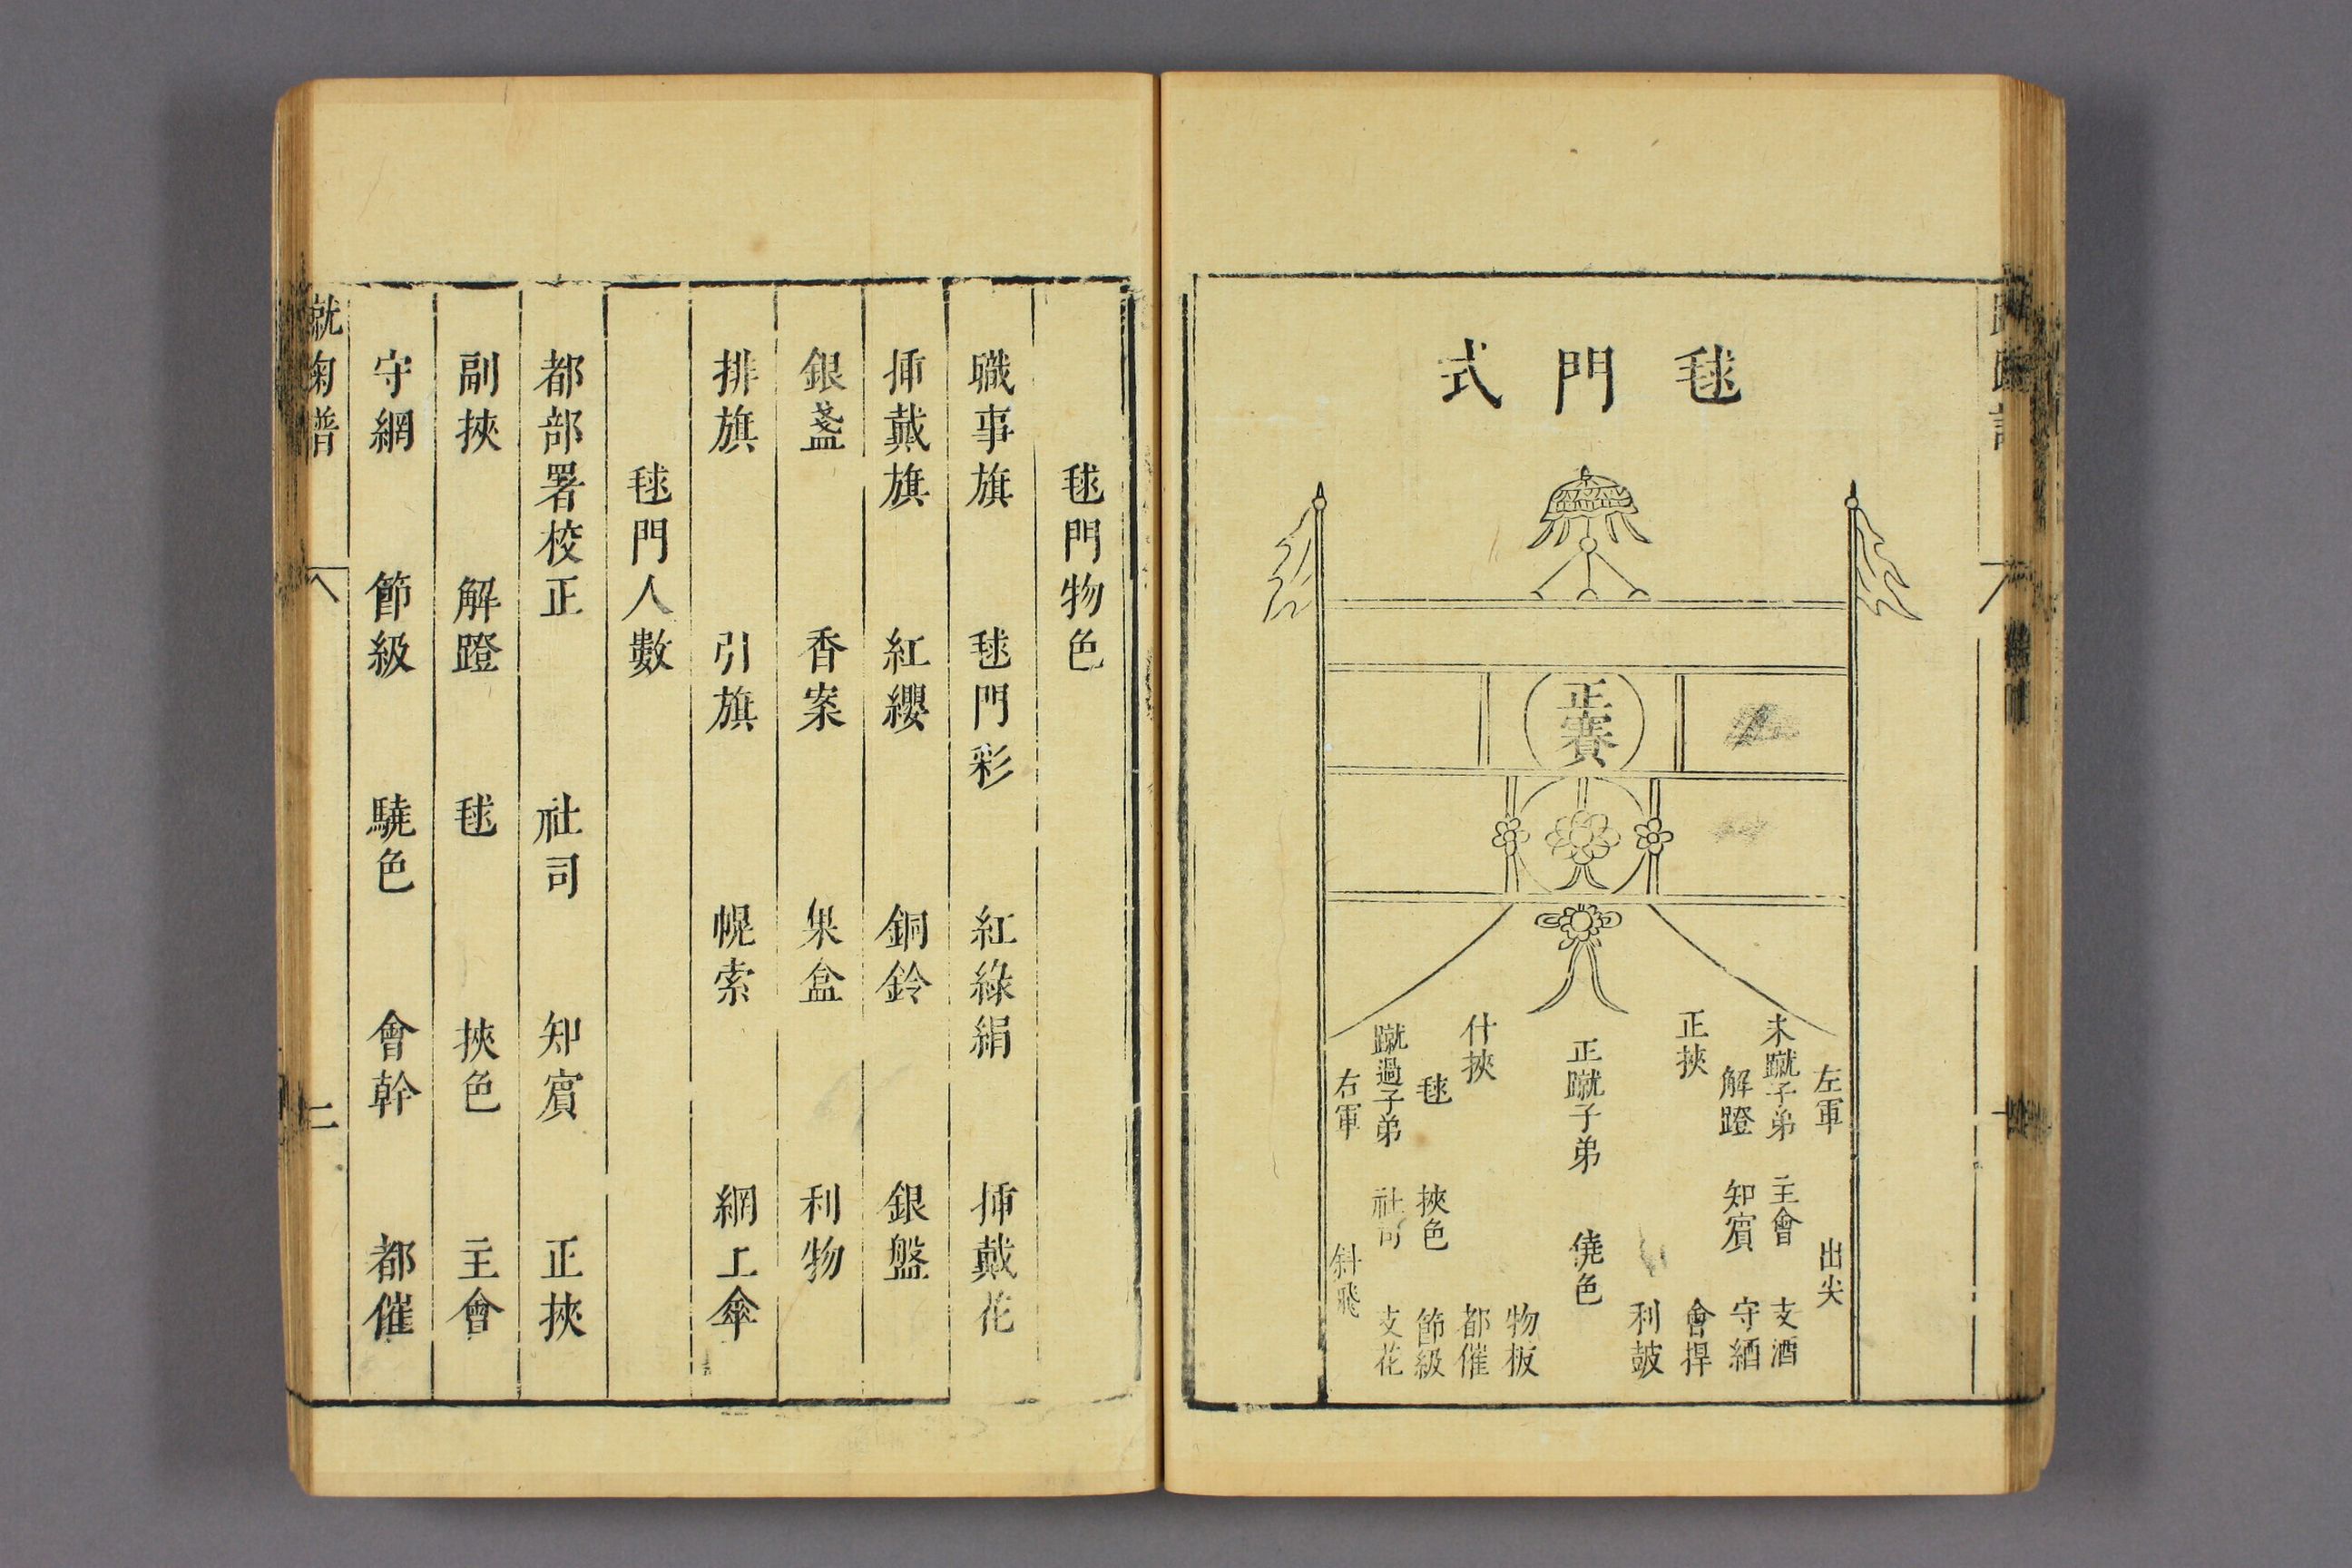 毬門式
正賽
左軍 出尖
未蹴子弟 主會 支酒
解蹬 知賔 守綇
正挾 會捍
利皷
正蹴子弟 僥色
物板
什挾 都催
毬 挾色 節級
蹴過子弟 社司 支花
右軍 斜飛
毬門物色
職事旗 毬門彩 紅綠絹 揷戴花
揷戴旗 紅纓 銅鈴 銀盤
銀盞 香案 菓盒 利物
排旗 引旗 幌索 網上傘
毬門人數
都部署校正 社司 知賔 正挾
副挾 解蹬 毬 挾色 主會
守網 節級 驍色 會幹 都催
二